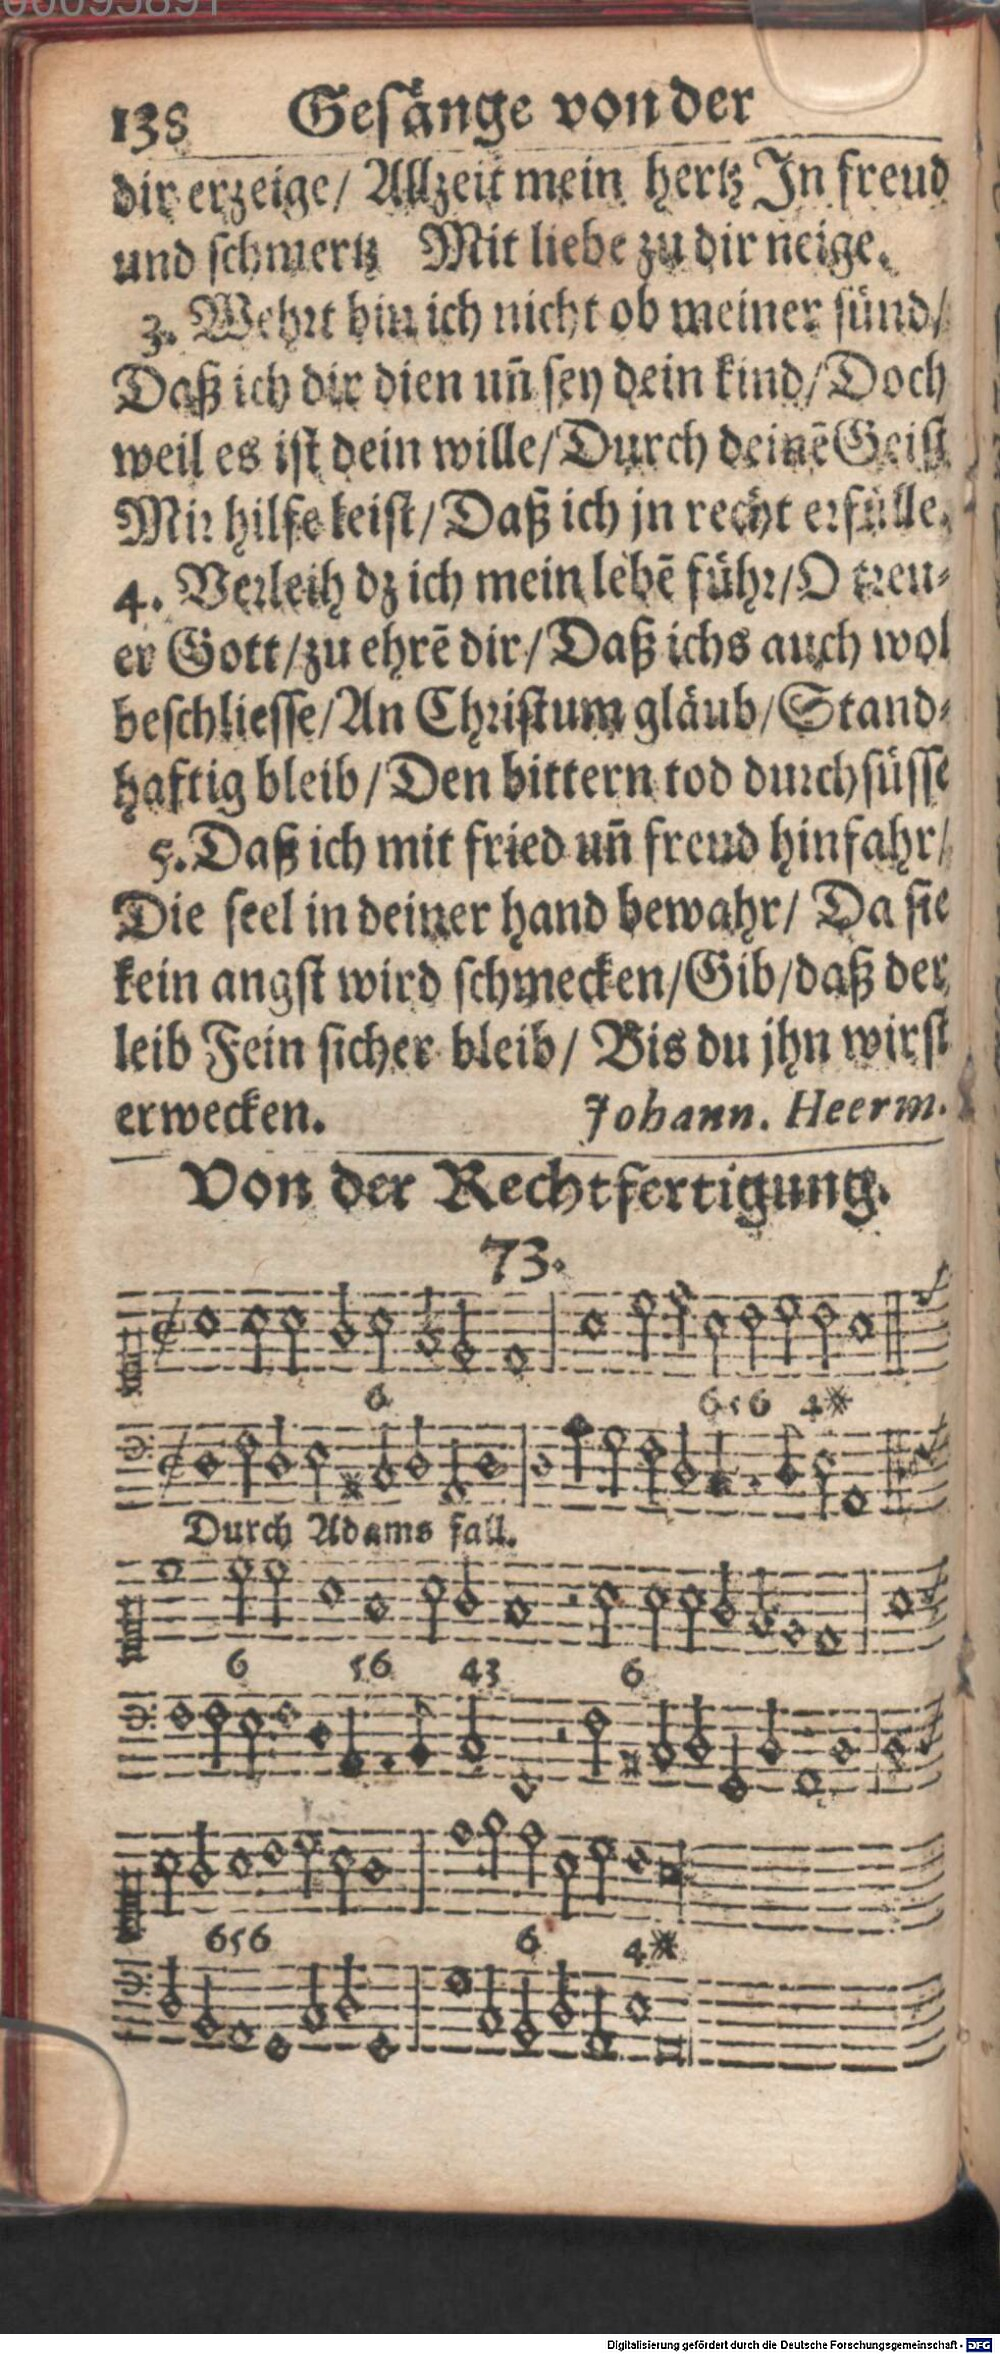 00095891
138 Gesänge von der
dir erzeige/ Allzeit mein hertz In freud
und schmertz Mit liebe zu dir neige.
3. Wehrt bin ich nicht ob meiner sünd/
Daß ich dir dien uñ sey dein kind/ Doch
weil es ist dein wille/ Durch deinē Geist
Mir hilfe leist/ Daß ich jn recht erfülle.
4. Verleih dz ich mein lebē führ/ O treu-
er Gott/ zu ehrē dir/ Daß ichs auch wol
beschliesse/ An Christum gläub/ Stand-
haftig bleib/ Den bittern tod durchsüsse
5. Daß ich mit fried uñ freud hinfahr/
Die seel in deiner hand bewahr/ Da sie
kein angst wird schmecken/ Gib/ daß der
leib Fein sicher bleib/ Bis du jhn wirst
erwecken. Johann. Heerm.
Von der Rechtfertigung.
73.
6 6 5 6 4
Durch Adams fall.
6 5 6 4 3 6
6 5 6 6 4
Digitalisierung gefördert durch die Deutsche Forschungsgemeinschaft - DFG